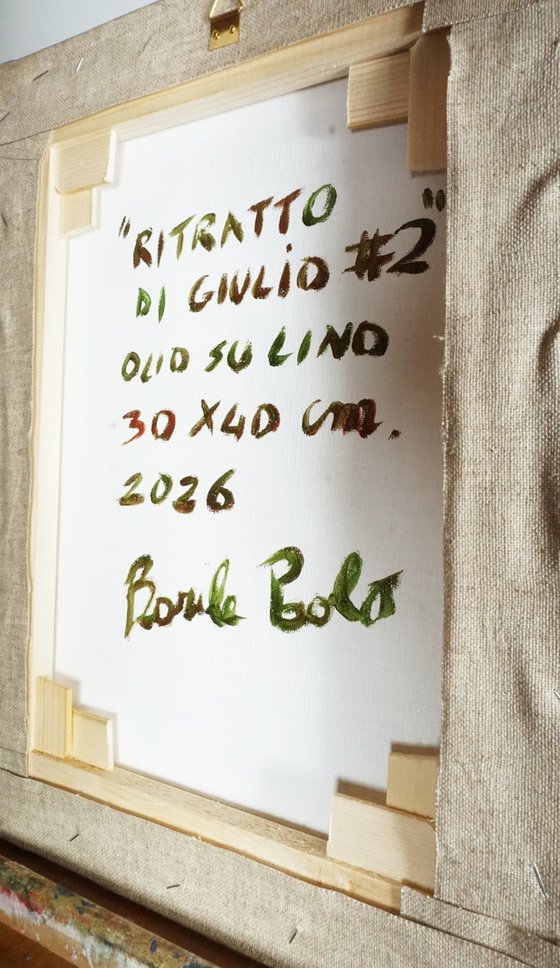 "RITRATTO
DI GIULIO #2"
OLIO SU LINO
30 X40 cm.
2026
Paolo